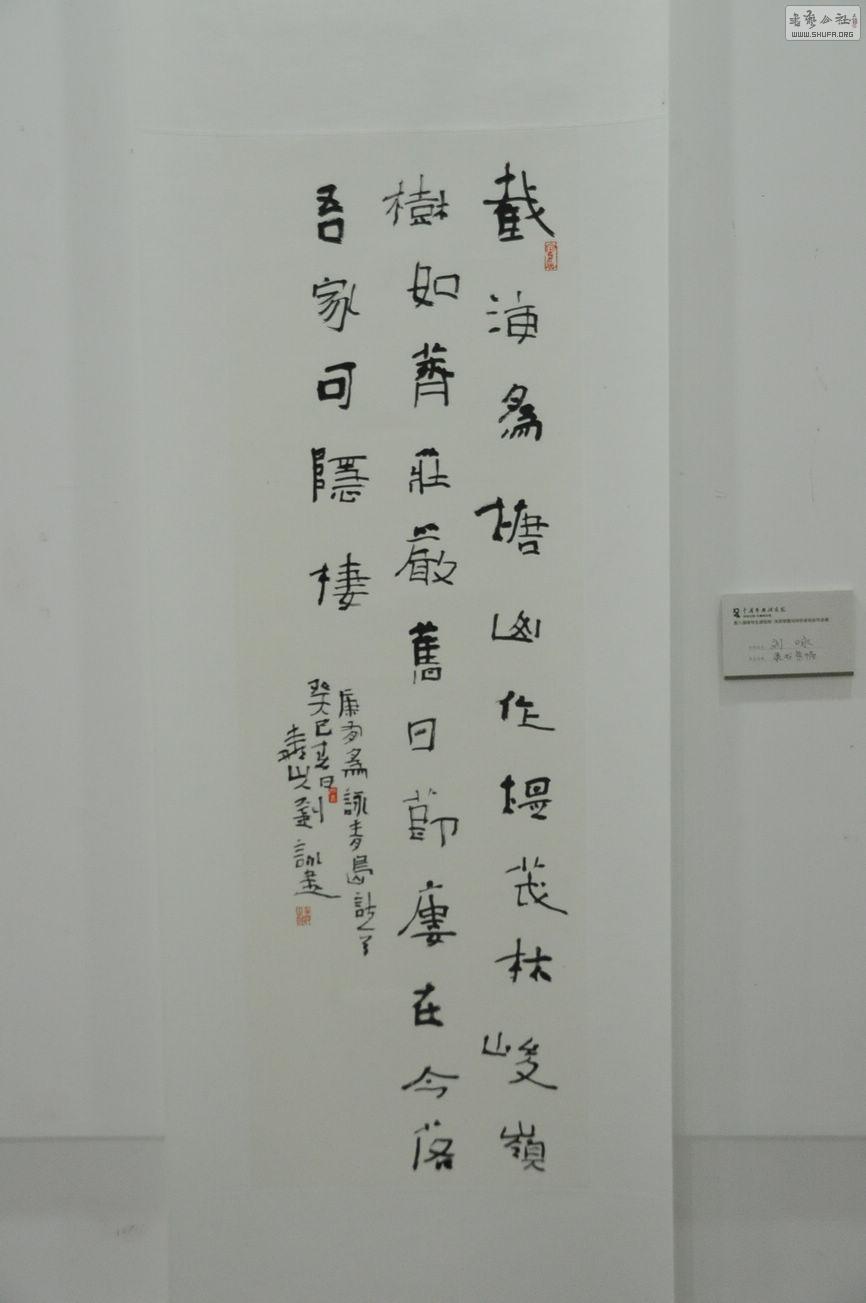 截海為塘山作堤茂林峻嶺
樹如薺莊嚴舊日節廔在今落
吾家可隱棲
康有為詠青島詩
癸巳春日
劉詠書
刘咏
書藝公社
WWW.SHUFA.ORG